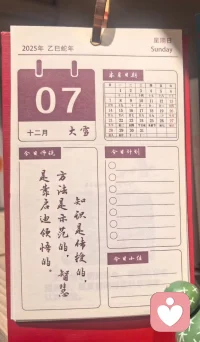 2025年 乙巳蛇年
星期日
Sunday
07
十二月 大雪
本月日期
今日师说
知识是传授的，
方法是示范的，智慧
是靠启迪领悟的。
今日计划
今日小结